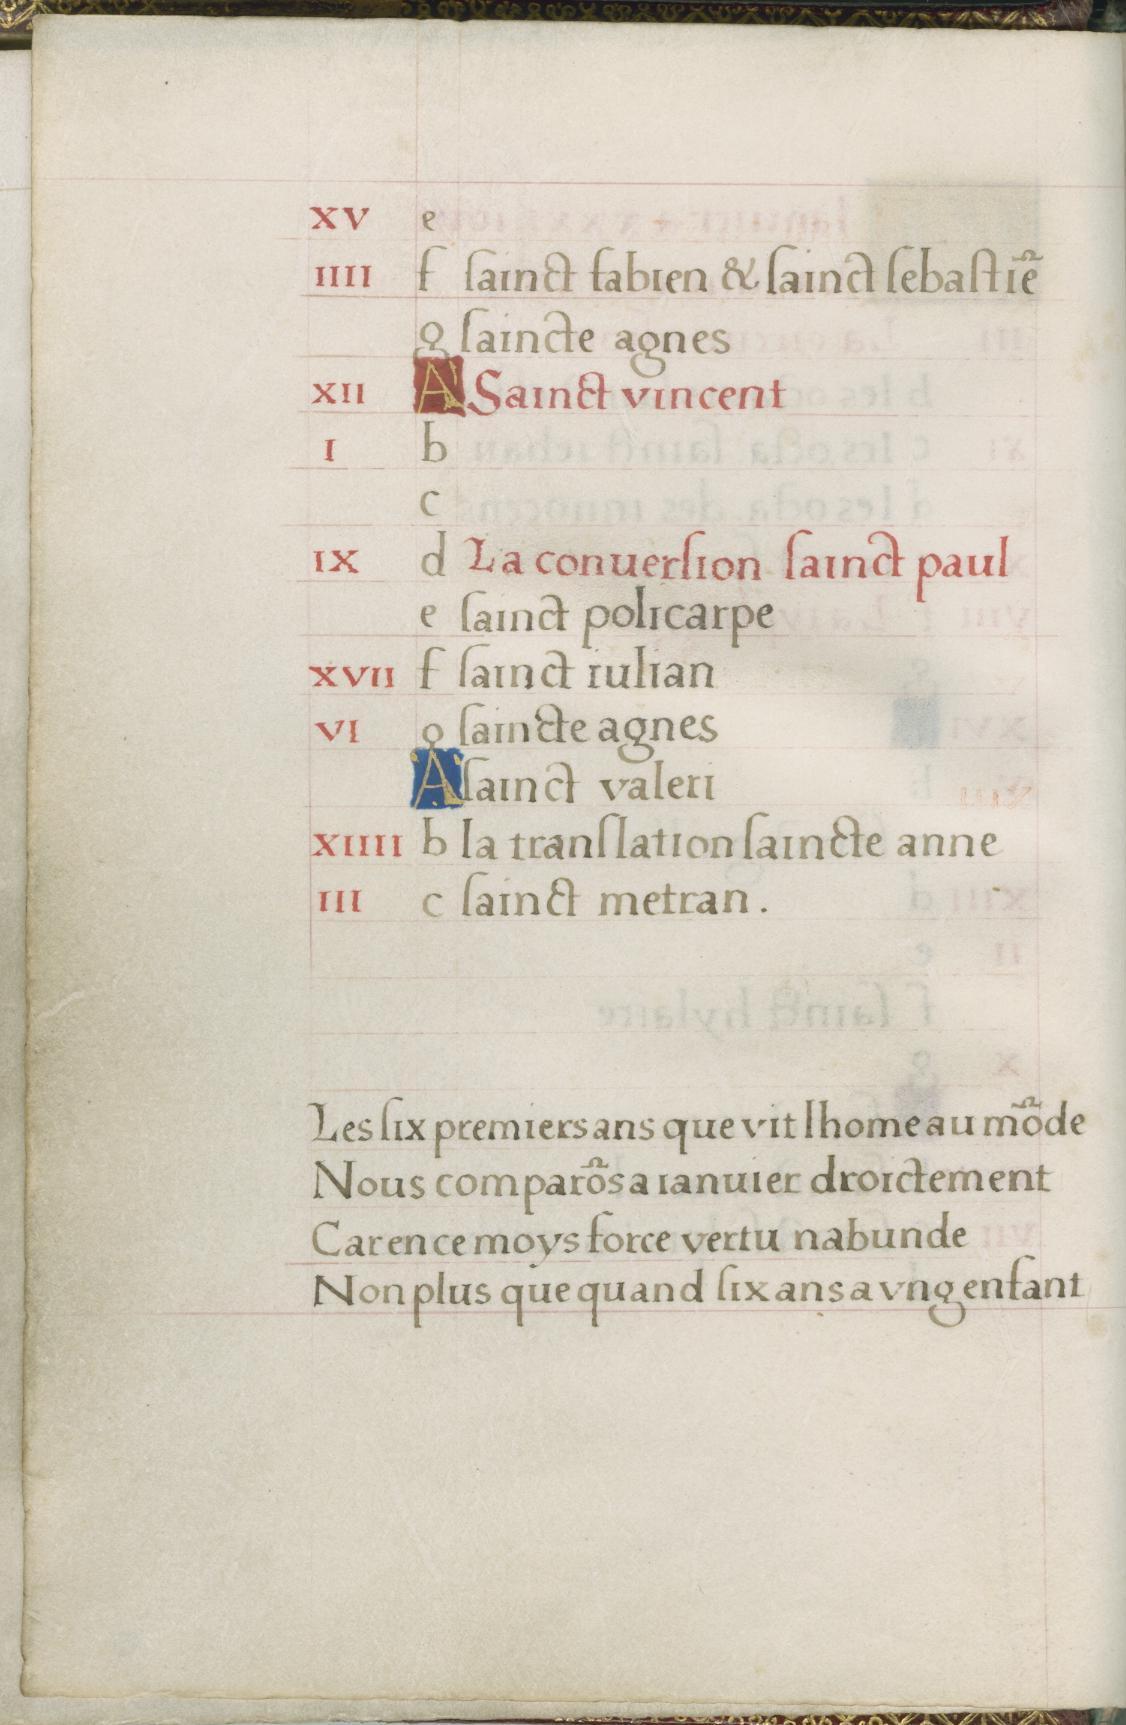 XV e
IIII f ſainct fabien & ſainct ſebaſtiē
g ſaincte agnes
XII A Sainct vincent
I b
c
IX d La conuerſion ſainct paul
e ſainct policarpe
XVII f ſainct iulian
VI g ſaincte agnes
A ſainct valeri
XIIII b la tranſlation ſaincte anne
III c ſainct metran.
Les ſix premiers ans que vit lhome au mōde
Nous comparōs a ianuier droictement
Car en ce moys force vertu nabunde
Non plus que quand ſix ans a vng enfant